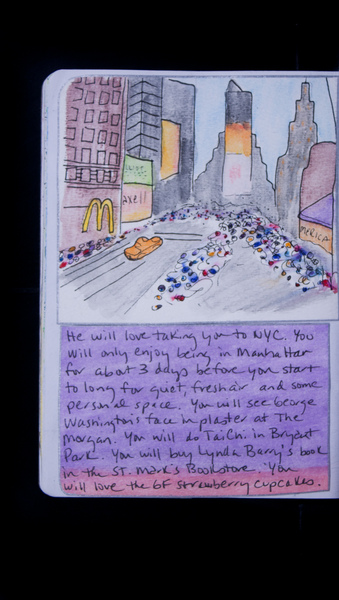 axell
MERICA
He will love taking you to NYC. You
will only enjoy being in Manhattan
for about 3 days before you start
to long for quiet, fresh air and some
personal space. You will see George
Washington's face in plaster at The
Morgan. You will do Tai Chi in Bryant
Park. You will buy Lynda Barry's book
in the St. Mark's Bookstore. You
will love the GF strawberry cupcakes.